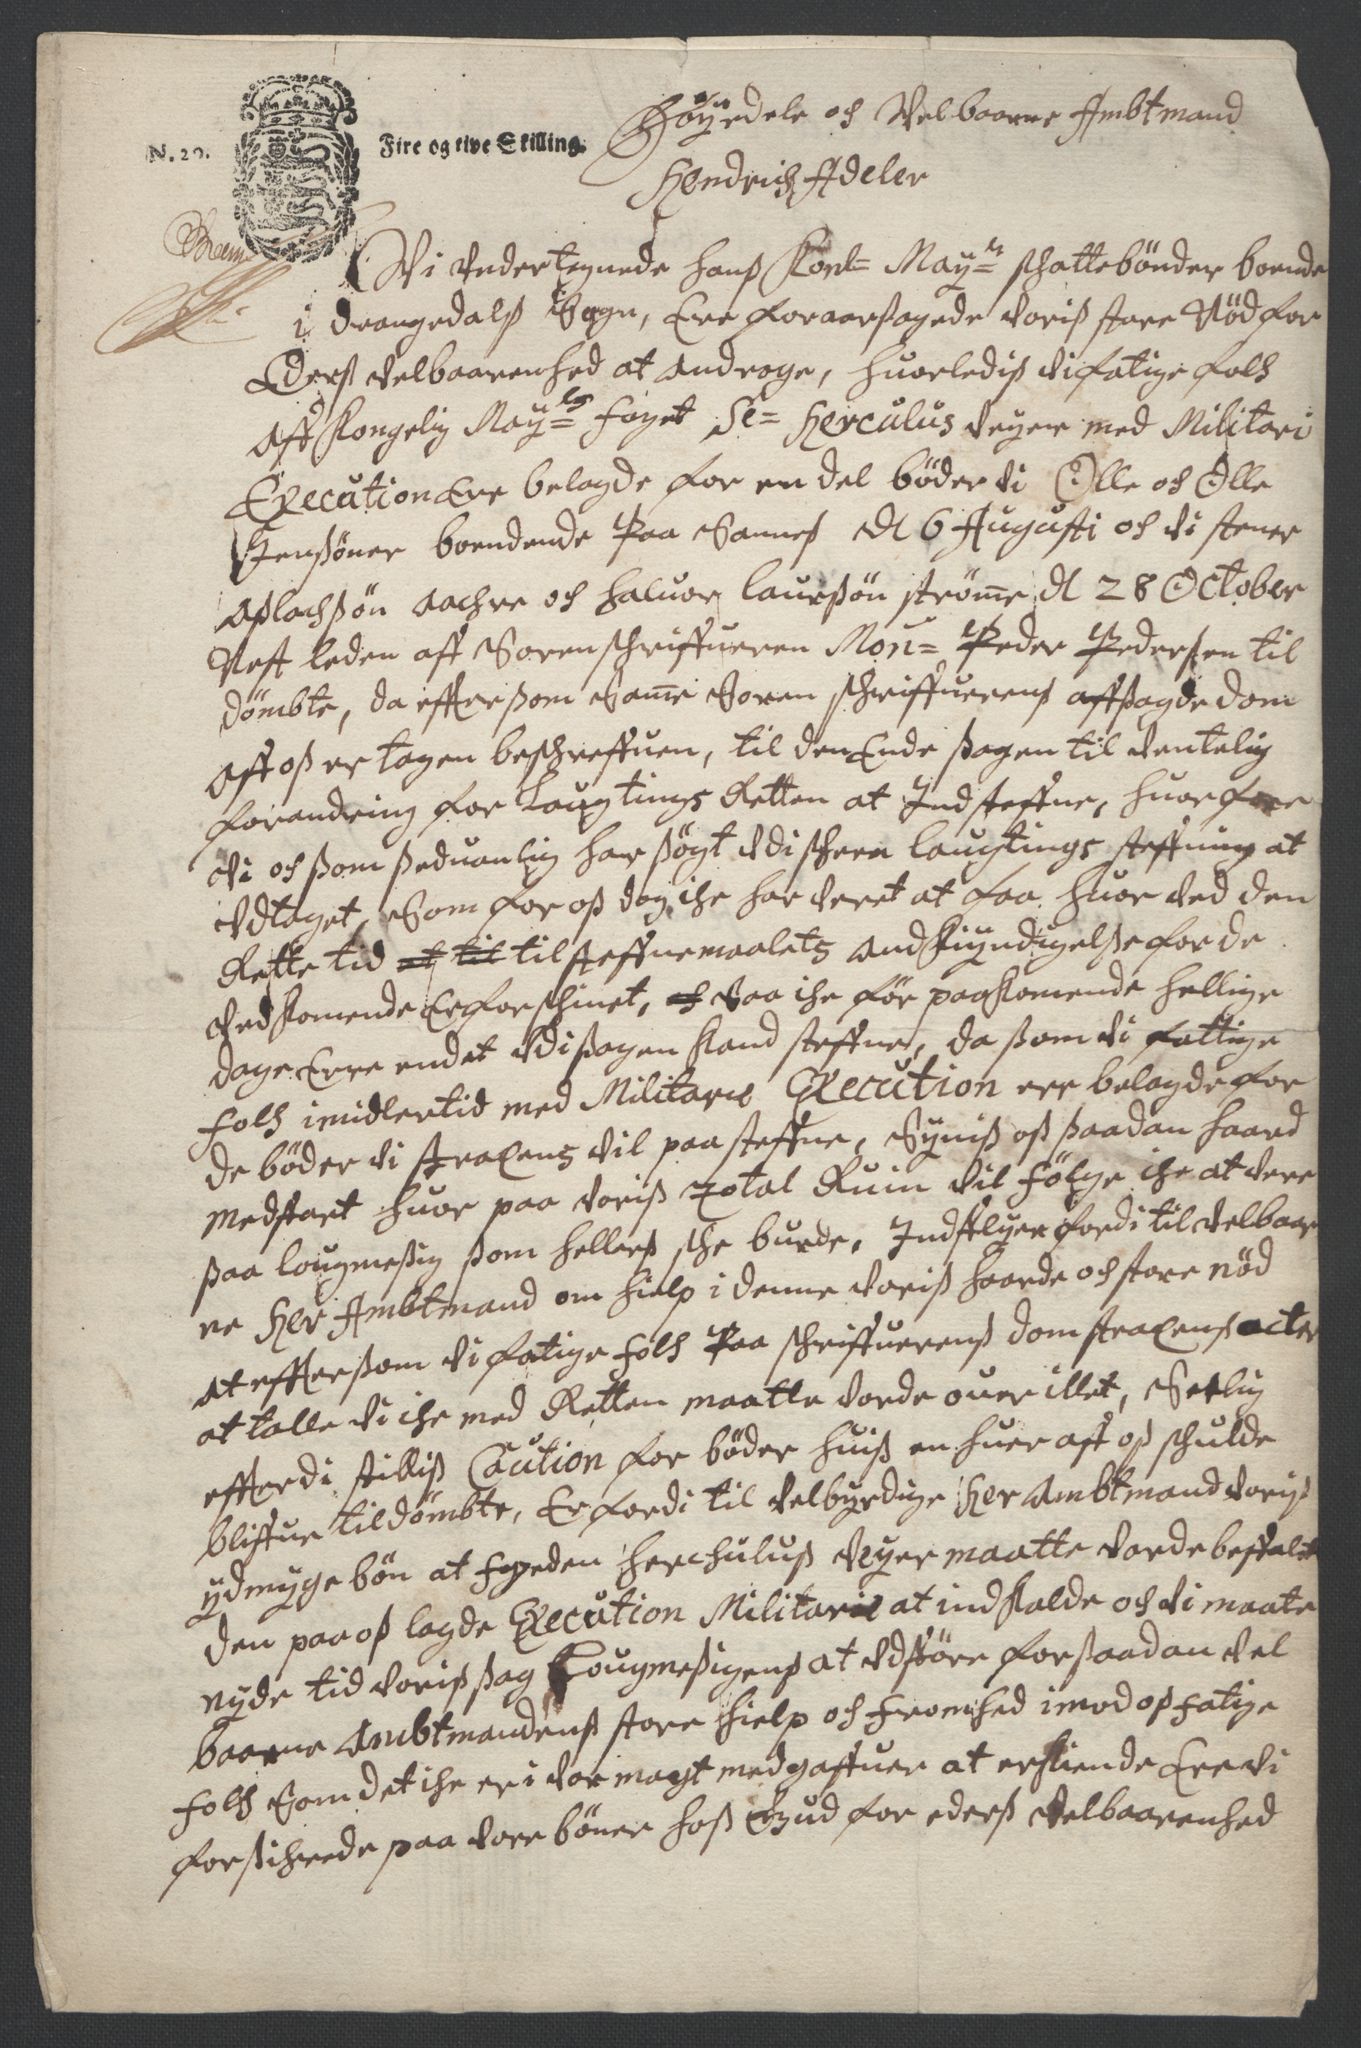 N. 20.
Fire og tive Skilling.
Höÿedele och Velbaarne Ambtmand
Hendrich Adeler
Vi Vndertegnede hanß Konl= May=ts schattebönder boende
i drangedalß Sogn, Ere foraarsagede Voriß store Nöd for
Ederß Velbaarenhed at androge, huorlediß Vi fatige folch
aff Kongelig May=tz foget Se= Herculus Veyer med Militari
Execution Ere belagde for en del böder Vi Olle och Olle
Jensöner boendende Paa Sannes d 6 Augusti och Vi stener
Aslachsön Aachre och haluor laursön strömme d 28 October
Nest leden aff Sorenschriffueren Mon= Peder Pedersen til
dömbte, da effterßom Samme Soren schriffuerenß affsagde dom
aff oß er tagen beschreffuen, til den Ende sagen til Ventelig
forandring for Laugtings Retten at Indsteffne, huorfore
Vi och som seduanlig har sögt Vdi scheen laugtings steffning at
Vdtaget, Som for oß dog iche har veret at faa huor Ved den
Rette tid til steffnemaalets andkÿndigelse for de
Vedkomende Er forschinet, Saa iche för paakomende hellige
dage Ere endet Vdi sagen kand steffne, da som Vi fattige
folch imidlertid med Militarie Execution ere belagde for
de böder Vi straxens Vil paasteffne, Sÿniß oß saadan haard
Medfart huor paa Voriß Total Ruin Vil fölge iche at Vere
saa lougmesig som hellerß sche burde, Indflyer fordi til Velbaar
ne Her Ambtmand om hielp i denne Voriß haarde och store nöd
at effterßom Vi fatige folch Paa schriffuerenß dom straxenß acter
at talle Vi iche med Retten maatte Vorde ouer illet, Serlig
effterdi stilliß Caution for böder huiß en huer aff oß schulde
bliffue tildömbte, Er fordi til Velbyrdige Her Ambtmand Voriß
ÿdmyge bön at fogeden Herchuluß Veyer maatte Vorde befalet
den paa oß lagde Execution Militarie at indkalde och Vi maate
nyde tid Voriß sag Lougmesigenß at Vdföre for saadan Vel
baarne Ambtmandenß store hielp och fromhed imod oß fatige
folch Som det iche er i Vor magt med gaffuer at erkiende Ere Vi
forsichrede paa Vore böner hoß Gud for ederß Velbaarenhed